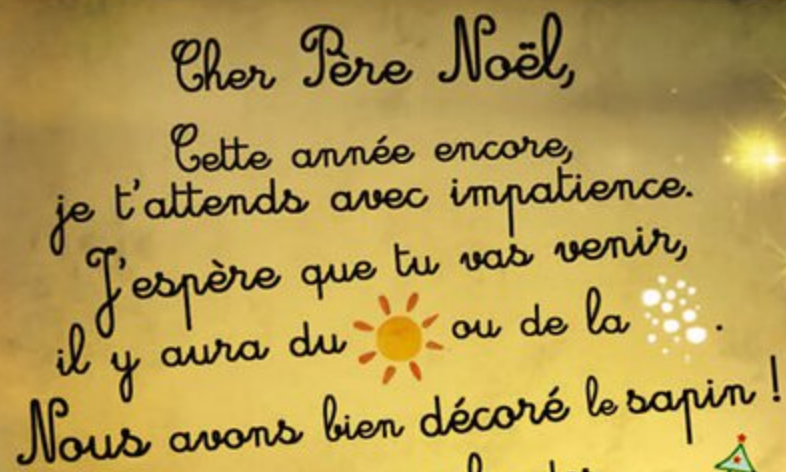 Cher Père Noël,
Cette année encore,
je t'attends avec impatience.
J'espère que tu vas venir,
il y aura du ou de la .
Nous avons bien décoré le sapin !